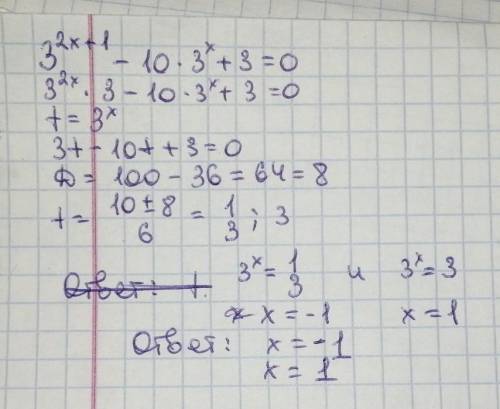 3^{2x+1} - 10 · 3^x + 3 = 0
3^{2x} · 3 - 10 · 3^x + 3 = 0
t = 3^x
3t - 10t + 3 = 0
D = 100 - 36 = 64 = 8
t = (10 ± 8)/6 = 1/3 ; 3
3^x = 1/3 и 3^x = 3
Ответ: 1.
x x = -1 x = 1
Ответ: x = -1
x = 1